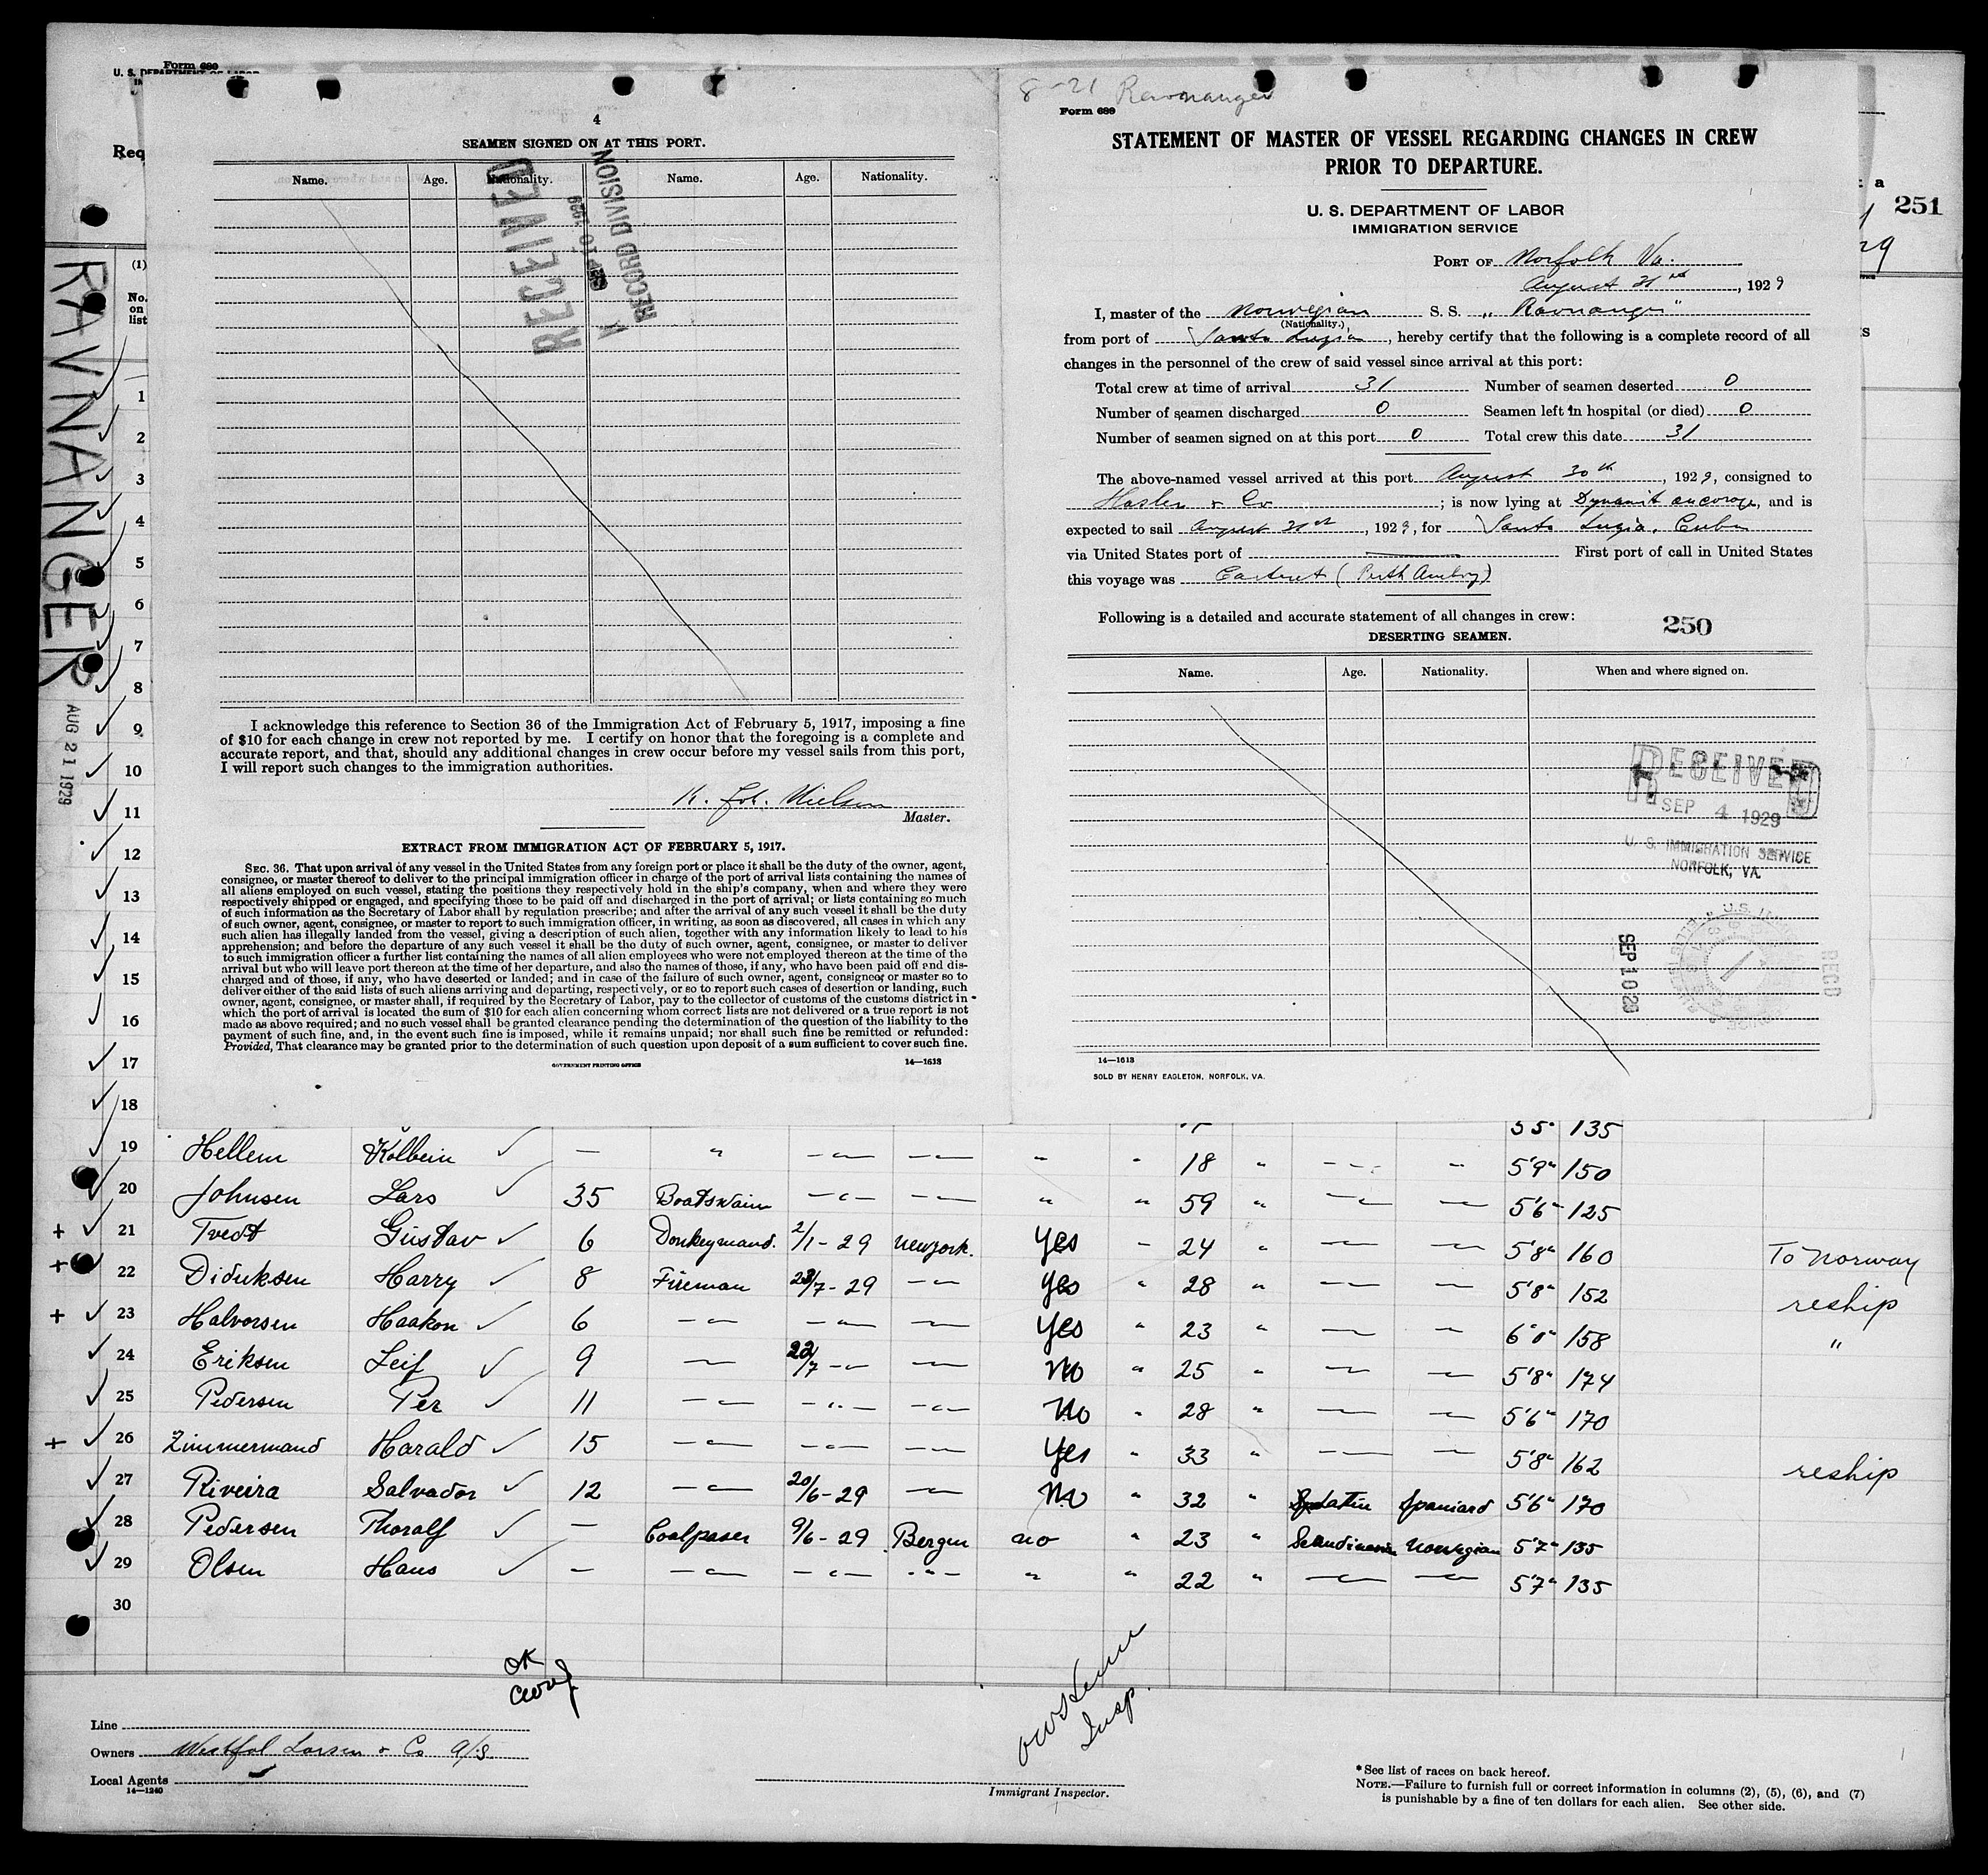 Form 680
U. S. DEPARTMENT OF LABOR
Req
251
29
RAVNANGER
AUG 21 1929
(1)
No. on list
4
SEAMEN SIGNED ON AT THIS PORT.
Name. Age. Nationality. Name. Age. Nationality.
RECEIVED
SEP 10 1929
RECORD DIVISION
I acknowledge this reference to Section 36 of the Immigration Act of February 5, 1917, imposing a fine
of $10 for each change in crew not reported by me. I certify on honor that the foregoing is a complete and
accurate report, and that, should any additional changes in crew occur before my vessel sails from this port,
I will report such changes to the immigration authorities.
K. Joh. Nielsen
Master.
EXTRACT FROM IMMIGRATION ACT OF FEBRUARY 5, 1917.
SEC. 36. That upon arrival of any vessel in the United States from any foreign port or place it shall be the duty of the owner, agent,
consignee, or master thereof to deliver to the principal immigration officer in charge of the port of arrival lists containing the names of
all aliens employed on such vessel, stating the positions they respectively hold in the ship's company, when and where they were
respectively shipped or engaged, and specifying those to be paid off and discharged in the port of arrival; or lists containing so much
of such information as the Secretary of Labor shall by regulation prescribe; and after the arrival of any such vessel it shall be the duty
of such owner, agent, consignee, or master to report to such immigration officer, in writing, as soon as discovered, all cases in which any
such alien has illegally landed from the vessel, giving a description of such alien, together with any information likely to lead to his
apprehension; and before the departure of any such vessel it shall be the duty of such owner, agent, consignee, or master to deliver
to such immigration officer a further list containing the names of all alien employees who were not employed thereon at the time of the
arrival but who will leave port thereon at the time of her departure, and also the names of those, if any, who have been paid off and dis-
charged and of those, if any, who have deserted or landed; and in case of the failure of such owner, agent, consignee, or master so to
deliver either of the said lists of such aliens arriving and departing, respectively, or so to report such cases of desertion or landing, such
owner, agent, consignee, or master shall, if required by the Secretary of Labor, pay to the collector of customs of the customs district in
which the port of arrival is located the sum of $10 for each alien concerning whom correct lists are not delivered or a true report is not
made as above required; and no such vessel shall be granted clearance pending the determination of the question of the liability to the
payment of such fine, and, in the event such fine is imposed, while it remains unpaid; nor shall such fine be remitted or refunded:
Provided, That clearance may be granted prior to the determination of such question upon deposit of a sum sufficient to cover such fine.
GOVERNMENT PRINTING OFFICE 14—1613
8-21 Ravnanger
Form 689
STATEMENT OF MASTER OF VESSEL REGARDING CHANGES IN CREW
PRIOR TO DEPARTURE.
U. S. DEPARTMENT OF LABOR
IMMIGRATION SERVICE
PORT OF Norfolk Va.
August 31st, 1929
I, master of the Norwegian S. S. "Ravnanger"
(Nationality.)
from port of Santa Lugia, hereby certify that the following is a complete record of all
changes in the personnel of the crew of said vessel since arrival at this port:
Total crew at time of arrival 31 Number of seamen deserted 0
Number of seamen discharged 0 Seamen left in hospital (or died) 0
Number of seamen signed on at this port 0 Total crew this date 31
The above-named vessel arrived at this port August 30th, 1929, consigned to
Hasler & Co; is now lying at Dynamit ancorage, and is
expected to sail August 31st, 1929, for Santa Lugia, Cuba
via United States port of —— First port of call in United States
this voyage was Carteret (Perth Amboy)
Following is a detailed and accurate statement of all changes in crew:
250
DESERTING SEAMEN.
Name. Age. Nationality. When and where signed on.
RECEIVED
SEP 4 1929
U. S. IMMIGRATION SERVICE
NORFOLK, VA.
SEP 10 29
RECD
14—1613
SOLD BY HENRY EAGLETON, NORFOLK, VA.
1
2
3
4
5
6
7
8
9
10
11
12
13
14
15
16
17
18
5 5" 135
19 Hellem Kolbein — " —"— —"— " " 18 " —"— " 5'9" 150
20 Johnsen Lars 35 Boatswain —"— —"— " " 59 " —"— —"— 5'6" 125
+ 21 Tvedt Gustav 6 Donkeymand. 2/1-29 Newyork. Yes - 24 " —"— —"— 5'8" 160 To Norway
+ 22 Didriksen Harry 8 Fireman 23/7-29 —"— Yes " 28 " —"— —"— 5'8" 152 reship
+ 23 Halvorsen Haakon 6 —"— —"— —"— Yes " 23 " —"— —"— 6'0" 158 "
24 Eriksen Leif 9 —"— 22/7 -"- —"— No " 25 " —"— —"— 5'8" 174
25 Pedersen Per 11 —"— —"— —"— No " 28 " —"— —"— 5'6" 170
+ 26 Zimmermand Harald 15 —"— —"— —"— Yes " 33 " —"— —"— 5'8" 162 reship
27 Riveira Salvador 12 —"— 20/6-29 —"— No " 32 " Latin Spaniard 5'6" 170
28 Pedersen Thoralf — Coalpaser 9/6-29 Bergen no " 23 " Scandinavia Norwegian 5'7" 135
29 Olsen Hans — —"— —"— —"— " " 22 " —"— —"— 5'7" 135
30
OK
Insp.
Line
Owners Westfal Larsen & Co A/S.
Local Agents
14—1240
Immigrant Inspector.
*See list of races on back hereof.
NOTE.—Failure to furnish full or correct information in columns (2), (5), (6), and (7)
is punishable by a fine of ten dollars for each alien. See other side.